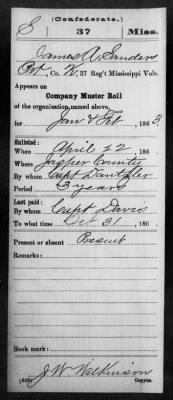 (Confederate.)
S 37 Miss.
James A. Sanders
Pvt, Co. K, 37 Reg't Mississippi Vols.
Appears on
Company Muster Roll
of the organization named above,
for Jan & Feb, 1863
Enlisted:
When April 22, 186
Where Jasper County
By whom Capt Dantzler
Period 3 years
Last paid:
By whom Capt Davis
To what time Oct 31, 186
Present or absent Present
Remarks:
Book mark:
J. W. Wilkinson
Copyist.